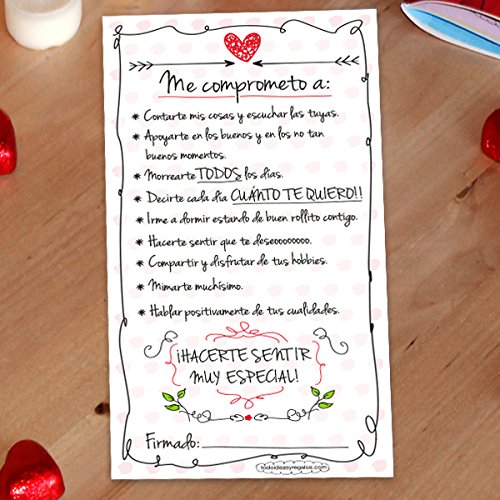 Me comprometo a:
* Contarte mis cosas y escuchar las tuyas.
* Apoyarte en los buenos y en los no tan
buenos momentos.
* Morrearte TODOS los días.
* Decirte cada día CUÁNTO TE QUIERO!!
* Irme a dormir estando de buen rollito contigo.
* Hacerte sentir que te deseoooooooo.
* Compartir y disfrutar de tus hobbies.
* Mimarte muchísimo.
* Hablar positivamente de tus cualidades.
¡HACERTE SENTIR
MUY ESPECIAL!
Firmado:
todoideasyregalos.com